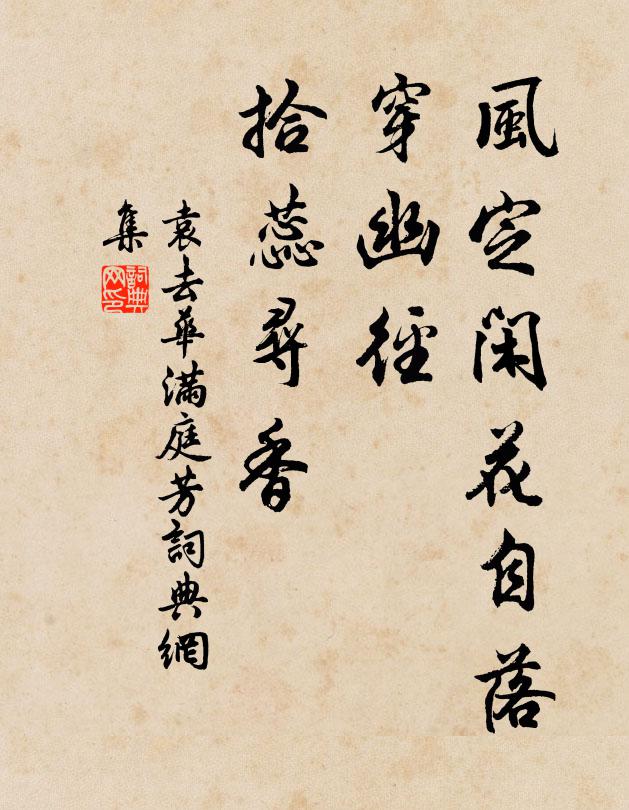 風定閑花自落
穿幽徑
拾蕊尋香
袁去華滿庭芳詞典網
集
詞典
网印